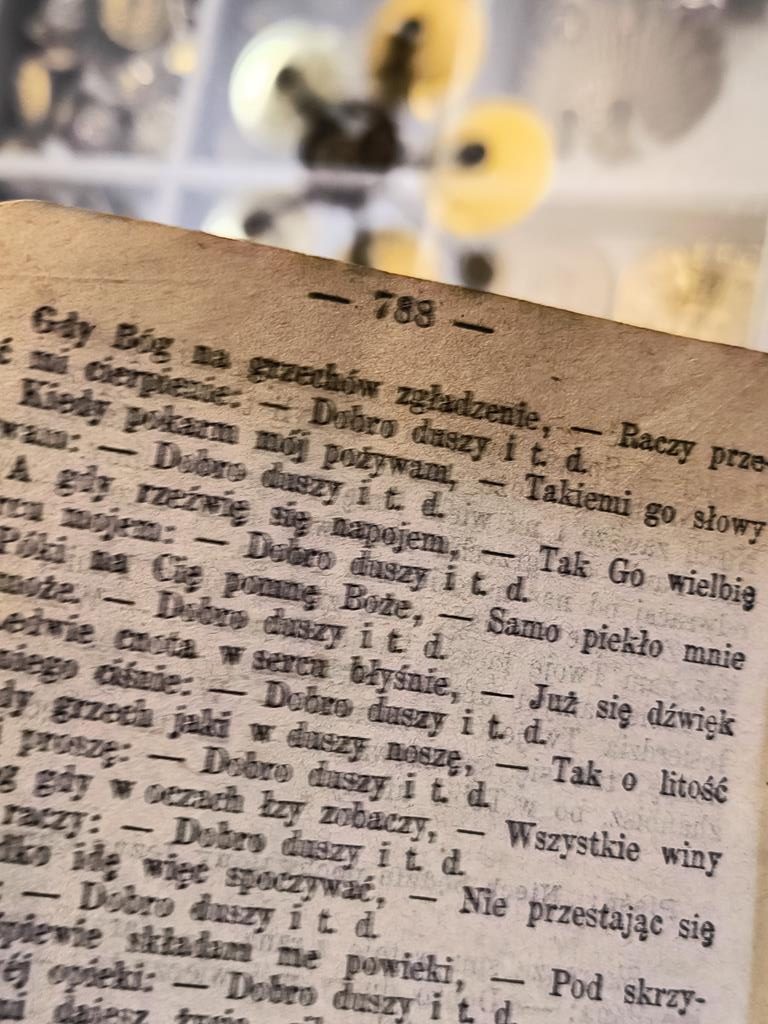 — 788 —
Gdy Bóg na grzechów zgładzenie, — Raczy prze-
ć mi cierpienie: — Dobro duszy i t. d.
Kiedy pokarm mój pożywam, — Takiemi go słowy
wam: — Dobro duszy i t. d.
A gdy rzeźwię się napojem, — Tak Go wielbię
rcu mojem: — Dobro duszy i t. d.
Póki na Cię pomnę Boże, — Samo piekło mnie
może. — Dobro duszy i t. d.
Ledwie cnota w sercu błyśnie, — Już się dźwięk
niego ciśnie: — Dobro duszy i t. d.
dy grzech jaki w duszy noszę, — Tak o litość
proszę: — Dobro duszy i t. d.
g gdy w oczach łzy zobaczy, — Wszystkie winy
raczy: — Dobro duszy i t. d.
idę więc spoczywać, — Nie przestając się
— Dobro duszy i t. d.
śpiewie składam me powieki, — Pod skrzy-
ej opieki: — Dobro duszy i t. d.
dajesz życie